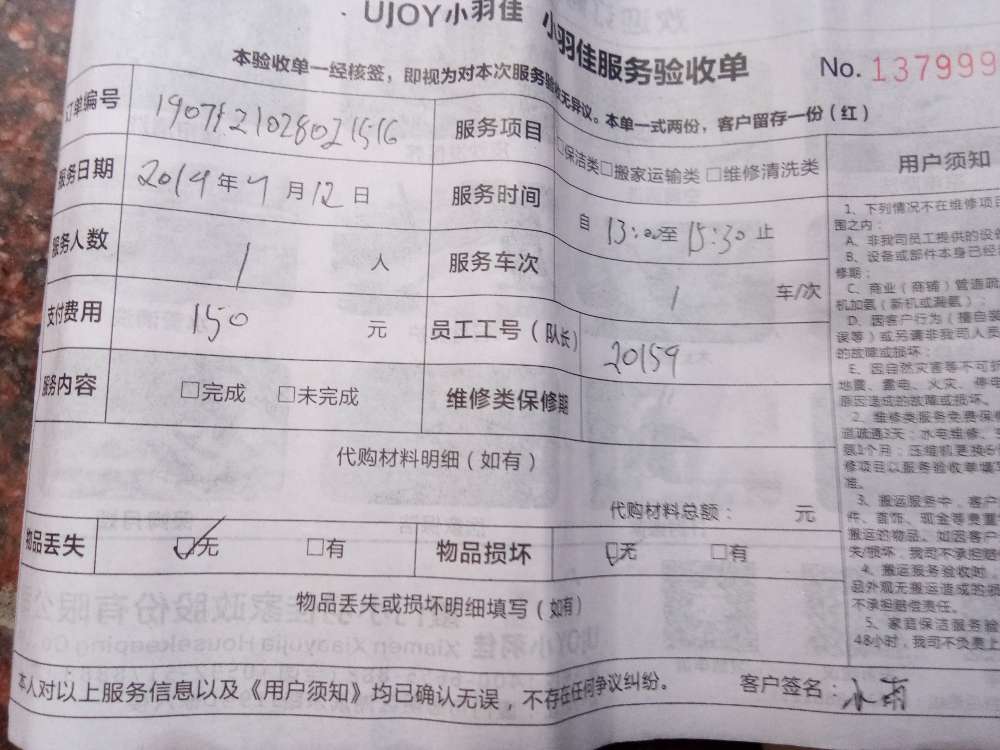 UJOY小羽佳 小羽佳服务验收单
No. 137999
本验收单一经核签，即视为对本次服务验收无异议。本单一式两份，客户留存一份（红）
订单编号 服务项目 □保洁类□搬家运输类 □维修清洗类
服务日期 年 月12日 服务时间 自 13:00至 15:30 止
服务人数 1 人 服务车次 1 车/次
支付费用 150 元 员工工号（队长） 20159
服务内容 □完成 □未完成 维修类保修期
代购材料明细（如有）
代购材料总额： 元
物品丢失 ☑无 □有 物品损坏 ☑无 □有
物品丢失或损坏明细填写（如有）
本人对以上服务信息以及《用户须知》均已确认无误，不存在任何争议纠纷。 客户签名：
用户须知
1、下列情况不在维修项目
围之内：
A、非我司员工提供的设备
B、设备或部件本身已经
修期；
C、商业（商铺）管道疏
机加氨（新机或漏氨）；
D、因客户行为（擅自装
误等）或另请非我司人员
的故障或损坏；
E、因自然灾害等不可抗
地震、雷电、火灾、停电
原因造成的故障或损坏。
2、维修类服务免费保修
道疏通3天；水电维修、
氨1个月；压缩机更换6
修项目以服务验收单填写
准。
3、搬运服务中，客户
件、首饰、现金等贵重
搬运的物品。如因客户
失/损坏，我司不承担赔
4、搬运服务验收时，
品外观无搬运造成的损
不承担赔偿责任。
5、家庭保洁服务验
48小时，我司不负责上